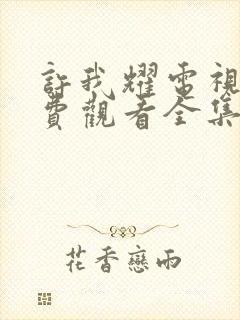 許我耀電視
費觀看全集
花香戀雨